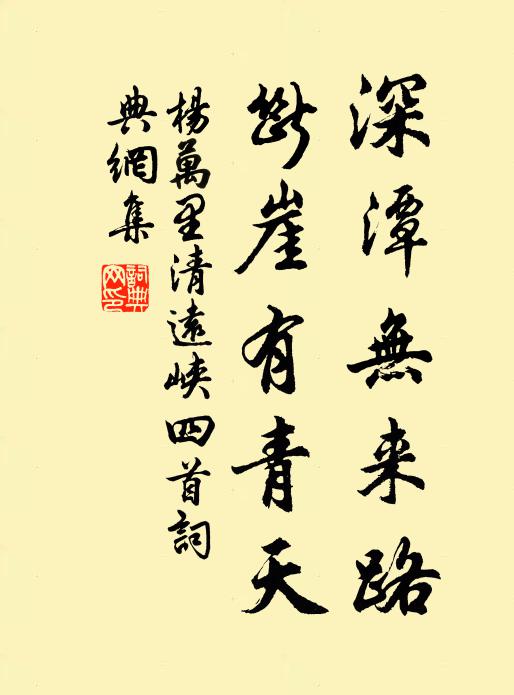 深潭無来路
斷崖有青天
楊萬里清遠峽四首詞
典網集
詞典
网印